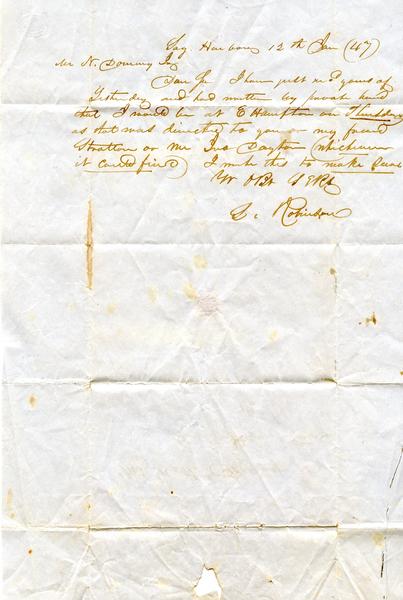 Sag Harbour 12th Jan (47)
Mr N. Dominy Jr
Dear Sir I have just recd yours of
Yesterday and had written by private hand
that I would be at E Hampton on Thursday
as that was directed to you or my friend
Stratton or Mr Jno Dayton (whichever
it could find) I write this to make sure
Yr Obt Sert
S. Robinson